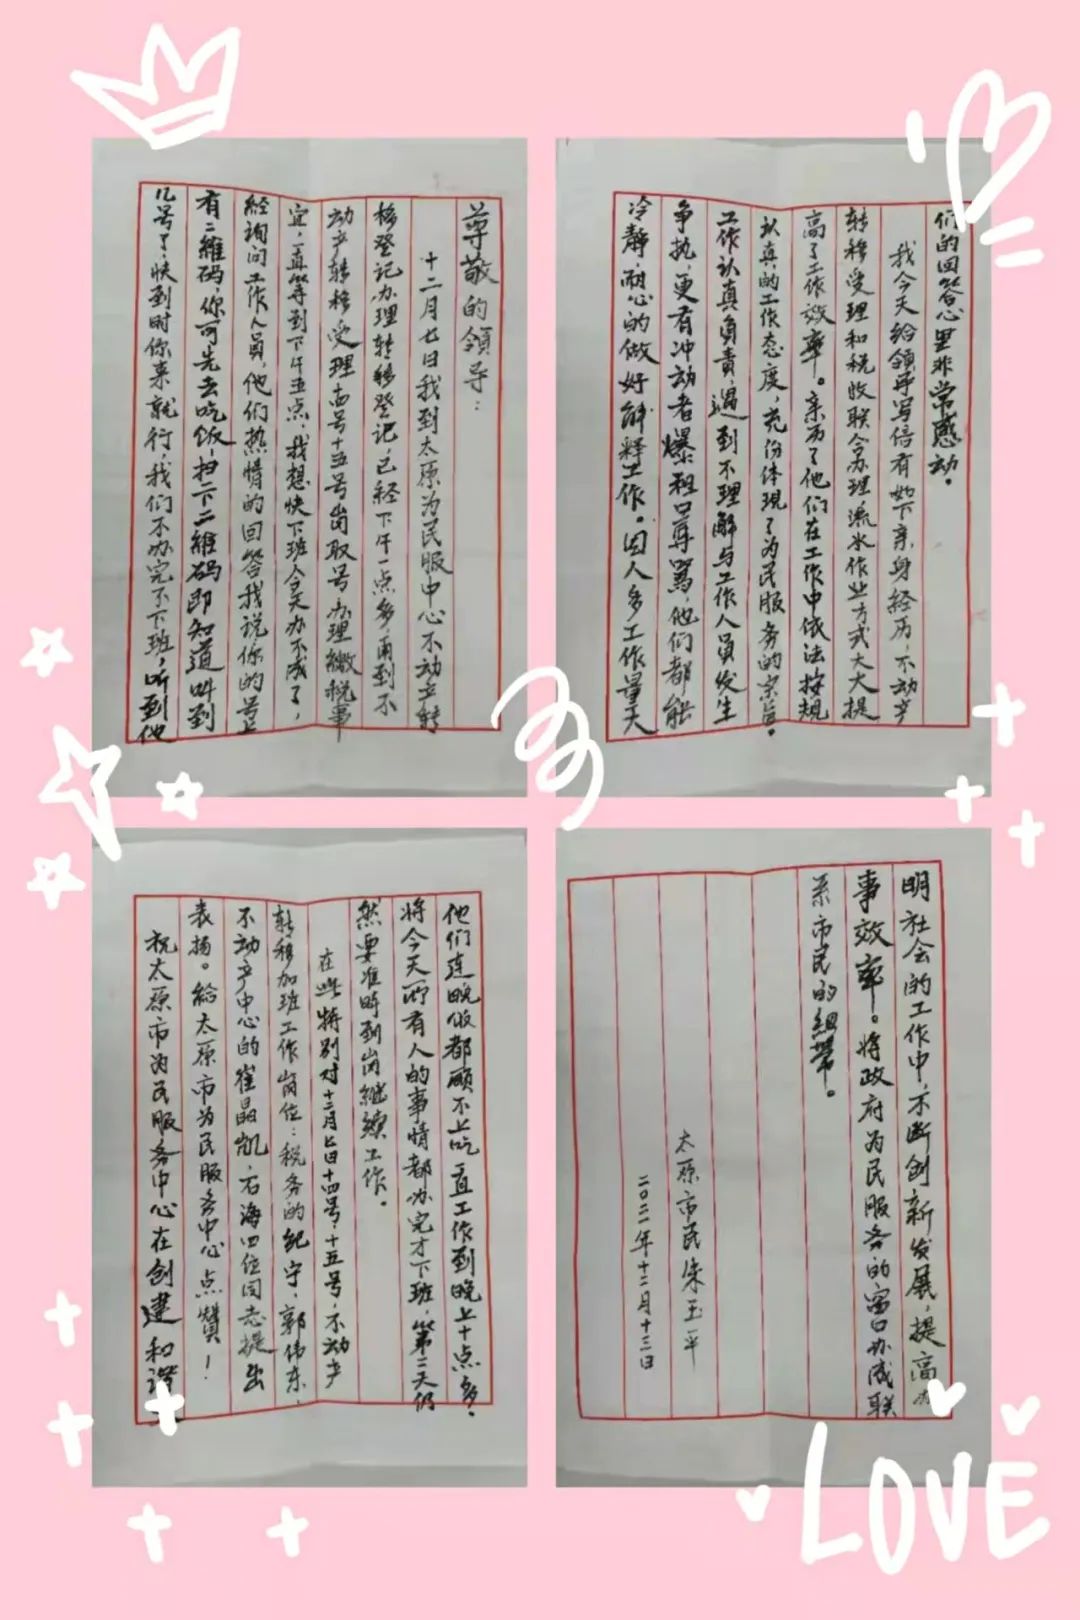 尊敬的領导：
十二月七日我到太原为民服中心不动产转
移登记办理转移登记，已经下午一点多，再到不
动产转移受理十四号十五号岗取号办理缴税事
宜，一直等到下午五点，我想快下班今天办不成了，
經询问工作人員，他们热情的回答我说你的号上
有二維码，你可先去吃饭，扫一下二維码即知道叫到
几号了，快到时你来就行，我们不办完不下班，听到他
们的回答心里非常感动。
我今天给領导写信有如下亲身經历，不动产
转移受理和税收联合办理流水作业方式大大提
高了工作效率。亲历了他们在工作中依法按規
认真的工作态度，充份体現了为民服务的宗旨。
工作认真負責，遇到不理解与工作人員发生
争执，更有冲动者爆粗口辱罵，他们都能
冷靜，耐心的做好解释工作。因人多工作量大
他们连晚饭都顾不上吃一直工作到晚上十点多，
将今天所有人的事情都办完才下班，第二天仍
然要准時到岗继续工作。
在此特别对十二月七日十四号，十五号，不动产
转移加班工作岗位：税务的紀宇，郭伟东，
不动产中心的崔晶凯，石海四位同志提出
表揚。給太原市为民服务中心点赞！
祝太原市为民服务中心在创建和谐文
明社会的工作中，不断创新发展，提高办
事效率。将政府为民服务的窗口办成联
系市民的紐带。
太原市民朱玉平
二〇二一年十二月十三日
LOVE